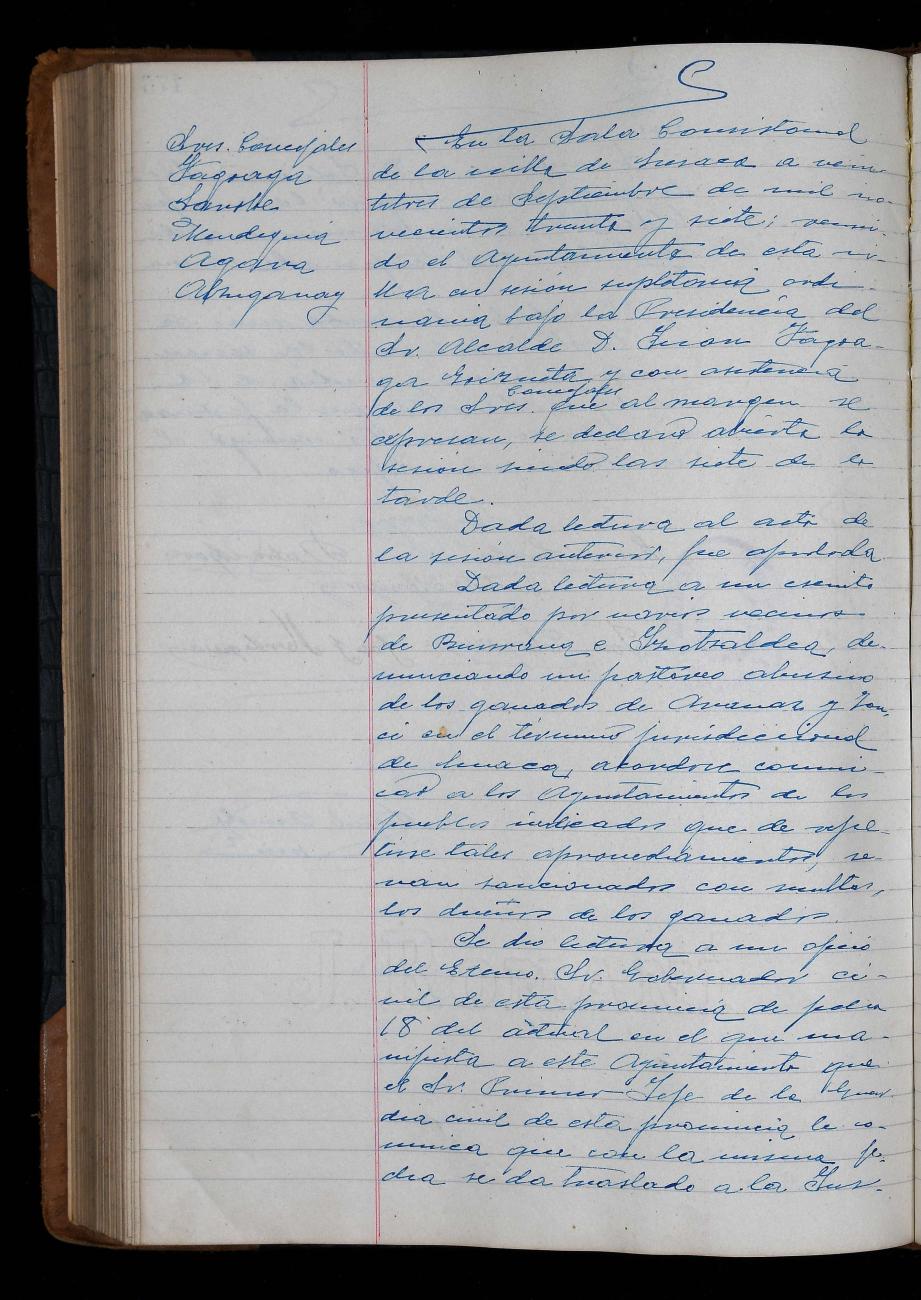 Sres. Concejales
Fagoaga
Sarobe
Mendeguia
Agara
Abuganay
En la Sala Consistorial
de la villa de Lesaca a vein-
titres de Septiembre de mil no-
vecientos treinta y siete; reuni-
do el Ayuntamiento de esta vi-
lla en sesión supletoria ordi-
naria bajo la Presidencia del
Sr. Alcalde D. Juan Fagoa-
ga y con asistencia
de los Sres. Concejales que al margen se
expresan, se declaró abierta la
sesión siendo las siete de la
tarde.
Dada lectura al acta de
la sesión anterior, fue aprobada
Dada lectura a un escrito
presentado por varios vecinos
de e de-
nunciando un pastoreo abusivo
de los ganados de Aranaz y Yan-
ci en el término jurisdiccional
de Lesaca, acordose comuni-
car a los Ayuntamientos de los
pueblos indicados que de repe-
tirse tales aprovechamientos, se-
ran sancionados con multas,
los dueños de los ganados.
Se dio lectura a un oficio
del Excmo. Sr. Gobernador ci-
vil de esta provincia de fecha
18 del actual en el que ma-
nifiesta a este Ayuntamiento que
el Sr. Primer Jefe de la Guar-
dia civil de esta provincia le co-
munica que con la misma fe-
cha se da traslado a la Ins-